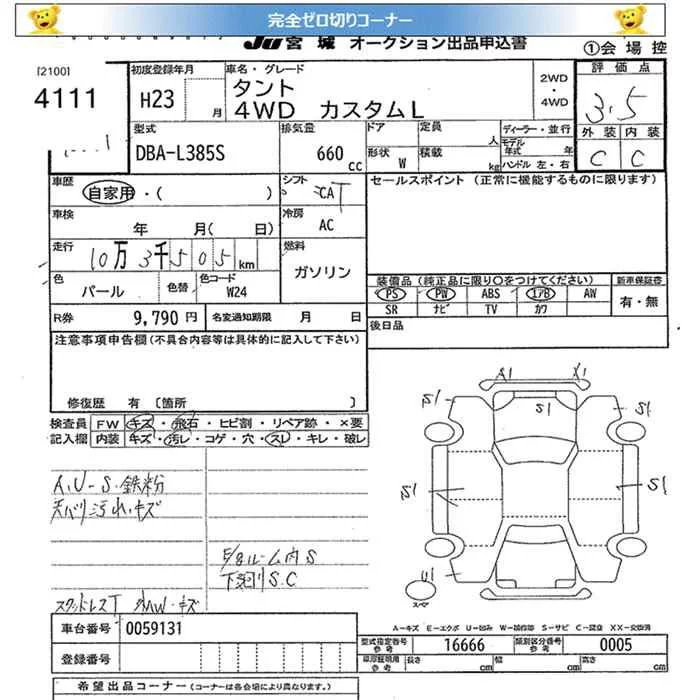 完全ゼロ切りコーナー
JU 宮城 オークション出品申込書
①会場控
[2100]
4111
初度登録年月
H23 月
車名・グレード
タント
4WD カスタムL
2WD
・
4WD
評価点
3.5
外装 内装
C C
型式
DBA-L385S
排気量
660 cc
ドア
形状 W
定員 人
積載 kg
ディーラー・並行
モデル年式 年
ハンドル 左・右
車歴
自家用・( )
シフト
CAT
セールスポイント (正常に機能するものに限ります)
車検
年 月( 日)
冷房
AC
走行
10万3千505km
燃料
ガソリン
色
パール
色替
色コード
W24
装備品 (純正品に限り○をつけてください)
新車保証書
PS PW ABS エアB AW
有・無
SR ナビ TV カワ
R券 9,790円 名変通知期限 月 日
後日品
注意事項申告欄(不具合内容等は具体的に記入して下さい)
修復歴 有 [箇所 ]
検査員 FW キズ・飛石・ヒビ割・リペア跡・×要
記入欄 内装 キズ・汚レ・コゲ・穴・スレ・キレ・破レ
A1 X1
S1 S1 S1
S1 S1
A,U-S・鉄粉
天バリ汚れ・キズ
E/gルーム内S
下廻りS.C
U1
スペア
A-キズ E-エクボ U-凹み S-サビ C-腐食 XX-交換済
車台番号 0059131
型式指定番号 参考 16666 類別区分番号 参考 0005
登録番号
長さ cm 幅 cm 高さ cm
希望出品コーナー (コーナーは各会場により異なります。)